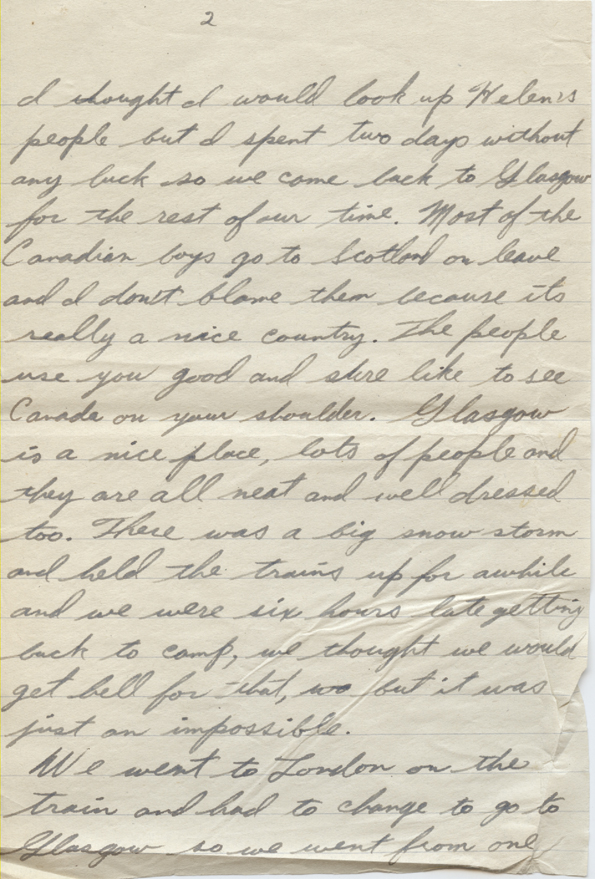 2
I thought I would look up Helen's
people but I spent two days without
any luck so we come back to Glasgow
for the rest of our time. Most of the
Canadian boys go to Scotland on leave
and I don't blame them because its
really a nice country. The people
use you good and shure like to see
Canada on your shoulder. Glasgow
is a nice place, lots of people and
they are all neat and well dressed
too. There was a big snow storm
and held the trains up for awhile
and we were six hours late getting
back to camp, we thought we would
get hell for that, but it was
just an impossible.
We went to London on the
train and had to change to go to
Glasgow so we went from one